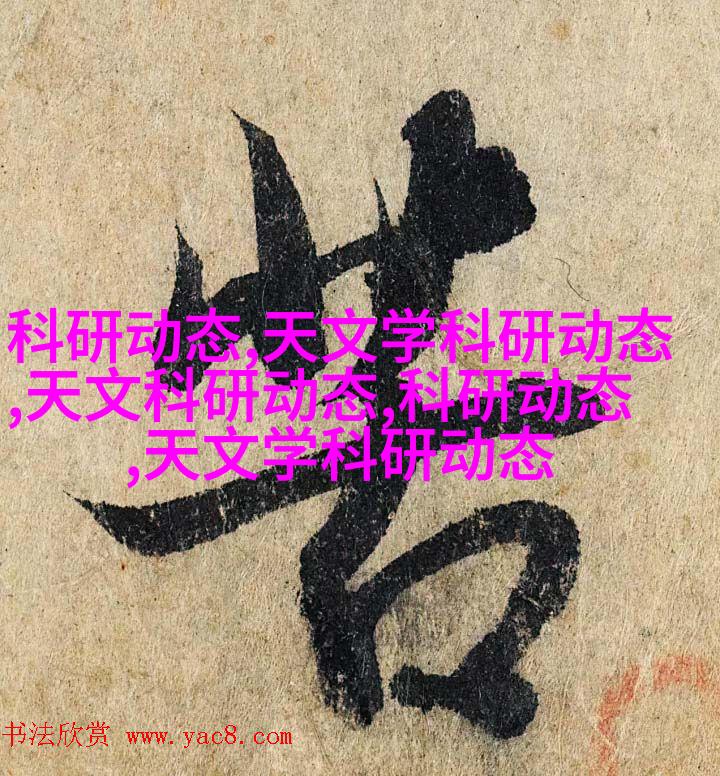 苦
科研动态,天文学科研动态
,天文科研动态,科研动态
,天文学科研动态
书法欣赏 www.yac8.com